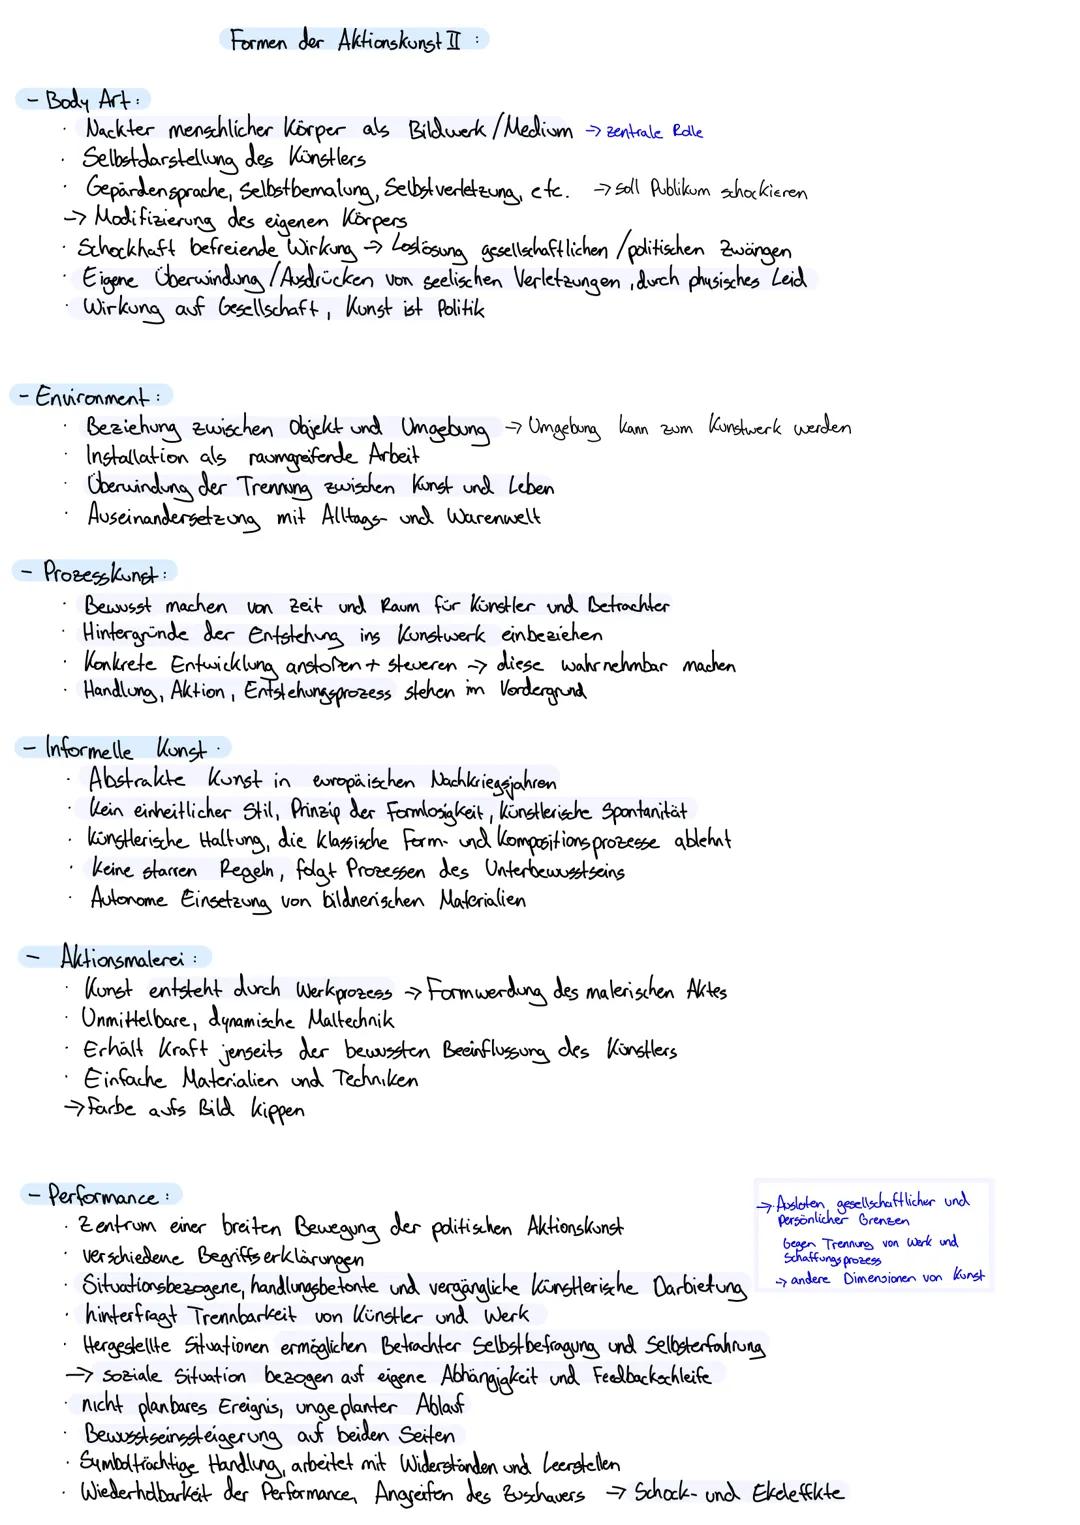 Formen der Aktionskunst II :
- Body Art:
· Nackter menschlicher Körper als Bildwerk/Medium → zentrale Rolle
· Selbstdarstellung des Künstlers
· Gepärdensprache, Selbstbemalung, Selbstverletzung, etc. → soll Publikum schockieren
→ Modifizierung des eigenen Körpers
· Schockhaft befreiende Wirkung → Loslösung gesellschaftlichen/politischen Zwängen
· Eigene Überwindung/Ausdrücken von seelischen Verletzungen, durch physisches Leid
· Wirkung auf Gesellschaft, Kunst ist Politik
- Environment:
· Beziehung zwischen Objekt und Umgebung → Umgebung kann zum Kunstwerk werden
· Installation als raumgreifende Arbeit
· Überwindung der Trennung zwischen Kunst und Leben
· Auseinandersetzung mit Alltags- und Warenwelt
- Prozesskunst:
· Bewusst machen von Zeit und Raum für Künstler und Betrachter
· Hintergründe der Entstehung ins Kunstwerk einbeziehen
· Konkrete Entwicklung anstoßen + steueren → diese wahrnehmbar machen
· Handlung, Aktion, Entstehungsprozess stehen im Vordergrund
- Informelle Kunst·
· Abstrakte Kunst in europäischen Nachkriegsjahren
· Kein einheitlicher Stil, Prinzip der Formlosigkeit, künstlerische Spontanität
· Künstlerische Haltung, die klassische Form- und Kompositionsprozesse ablehnt
· Keine starren Regeln, folgt Prozessen des Unterbewusstseins
· Autonome Einsetzung von bildnerischen Materialien
- Aktionsmalerei:
· Kunst entsteht durch Werkprozess → Formwerdung des malerischen Aktes
· Unmittelbare, dynamische Maltechnik
· Erhält Kraft jenseits der bewussten Beeinflussung des Künstlers
· Einfache Materialien und Techniken
→ Farbe aufs Bild kippen
- Performance:
· Zentrum einer breiten Bewegung der politischen Aktionskunst
· verschiedene Begriffserklärungen
· Situationsbezogene, handlungsbetonte und vergängliche künstlerische Darbietung
· hinterfragt Trennbarkeit von Künstler und Werk
· Hergestellte Situationen ermöglichen Betrachter Selbstbefragung und Selbsterfahrung
→ soziale Situation bezogen auf eigene Abhängigkeit und Feedbackschleife
· nicht planbares Ereignis, ungeplanter Ablauf
· Bewusstseinssteigerung auf beiden Seiten
· Symbolträchtige Handlung, arbeitet mit Widerständen und Leerstellen
· Wiederholbarkeit der Performance, Angreifen des Zuschauers → Schock- und Ekeleffkte
→ Ausloten gesellschaftlicher und
persönlicher Grenzen
Gegen Trennung von Werk und
Schaffungsprozess
→ andere Dimensionen von Kunst